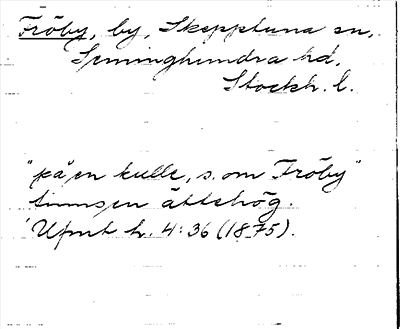 Fröby, by, Skepptuna sn,
Seminghundra hd,
Stockh. l.
"på en kulle, s. om Fröby"
finnes en ättehög.
Upmk h. 4:36 (1875).